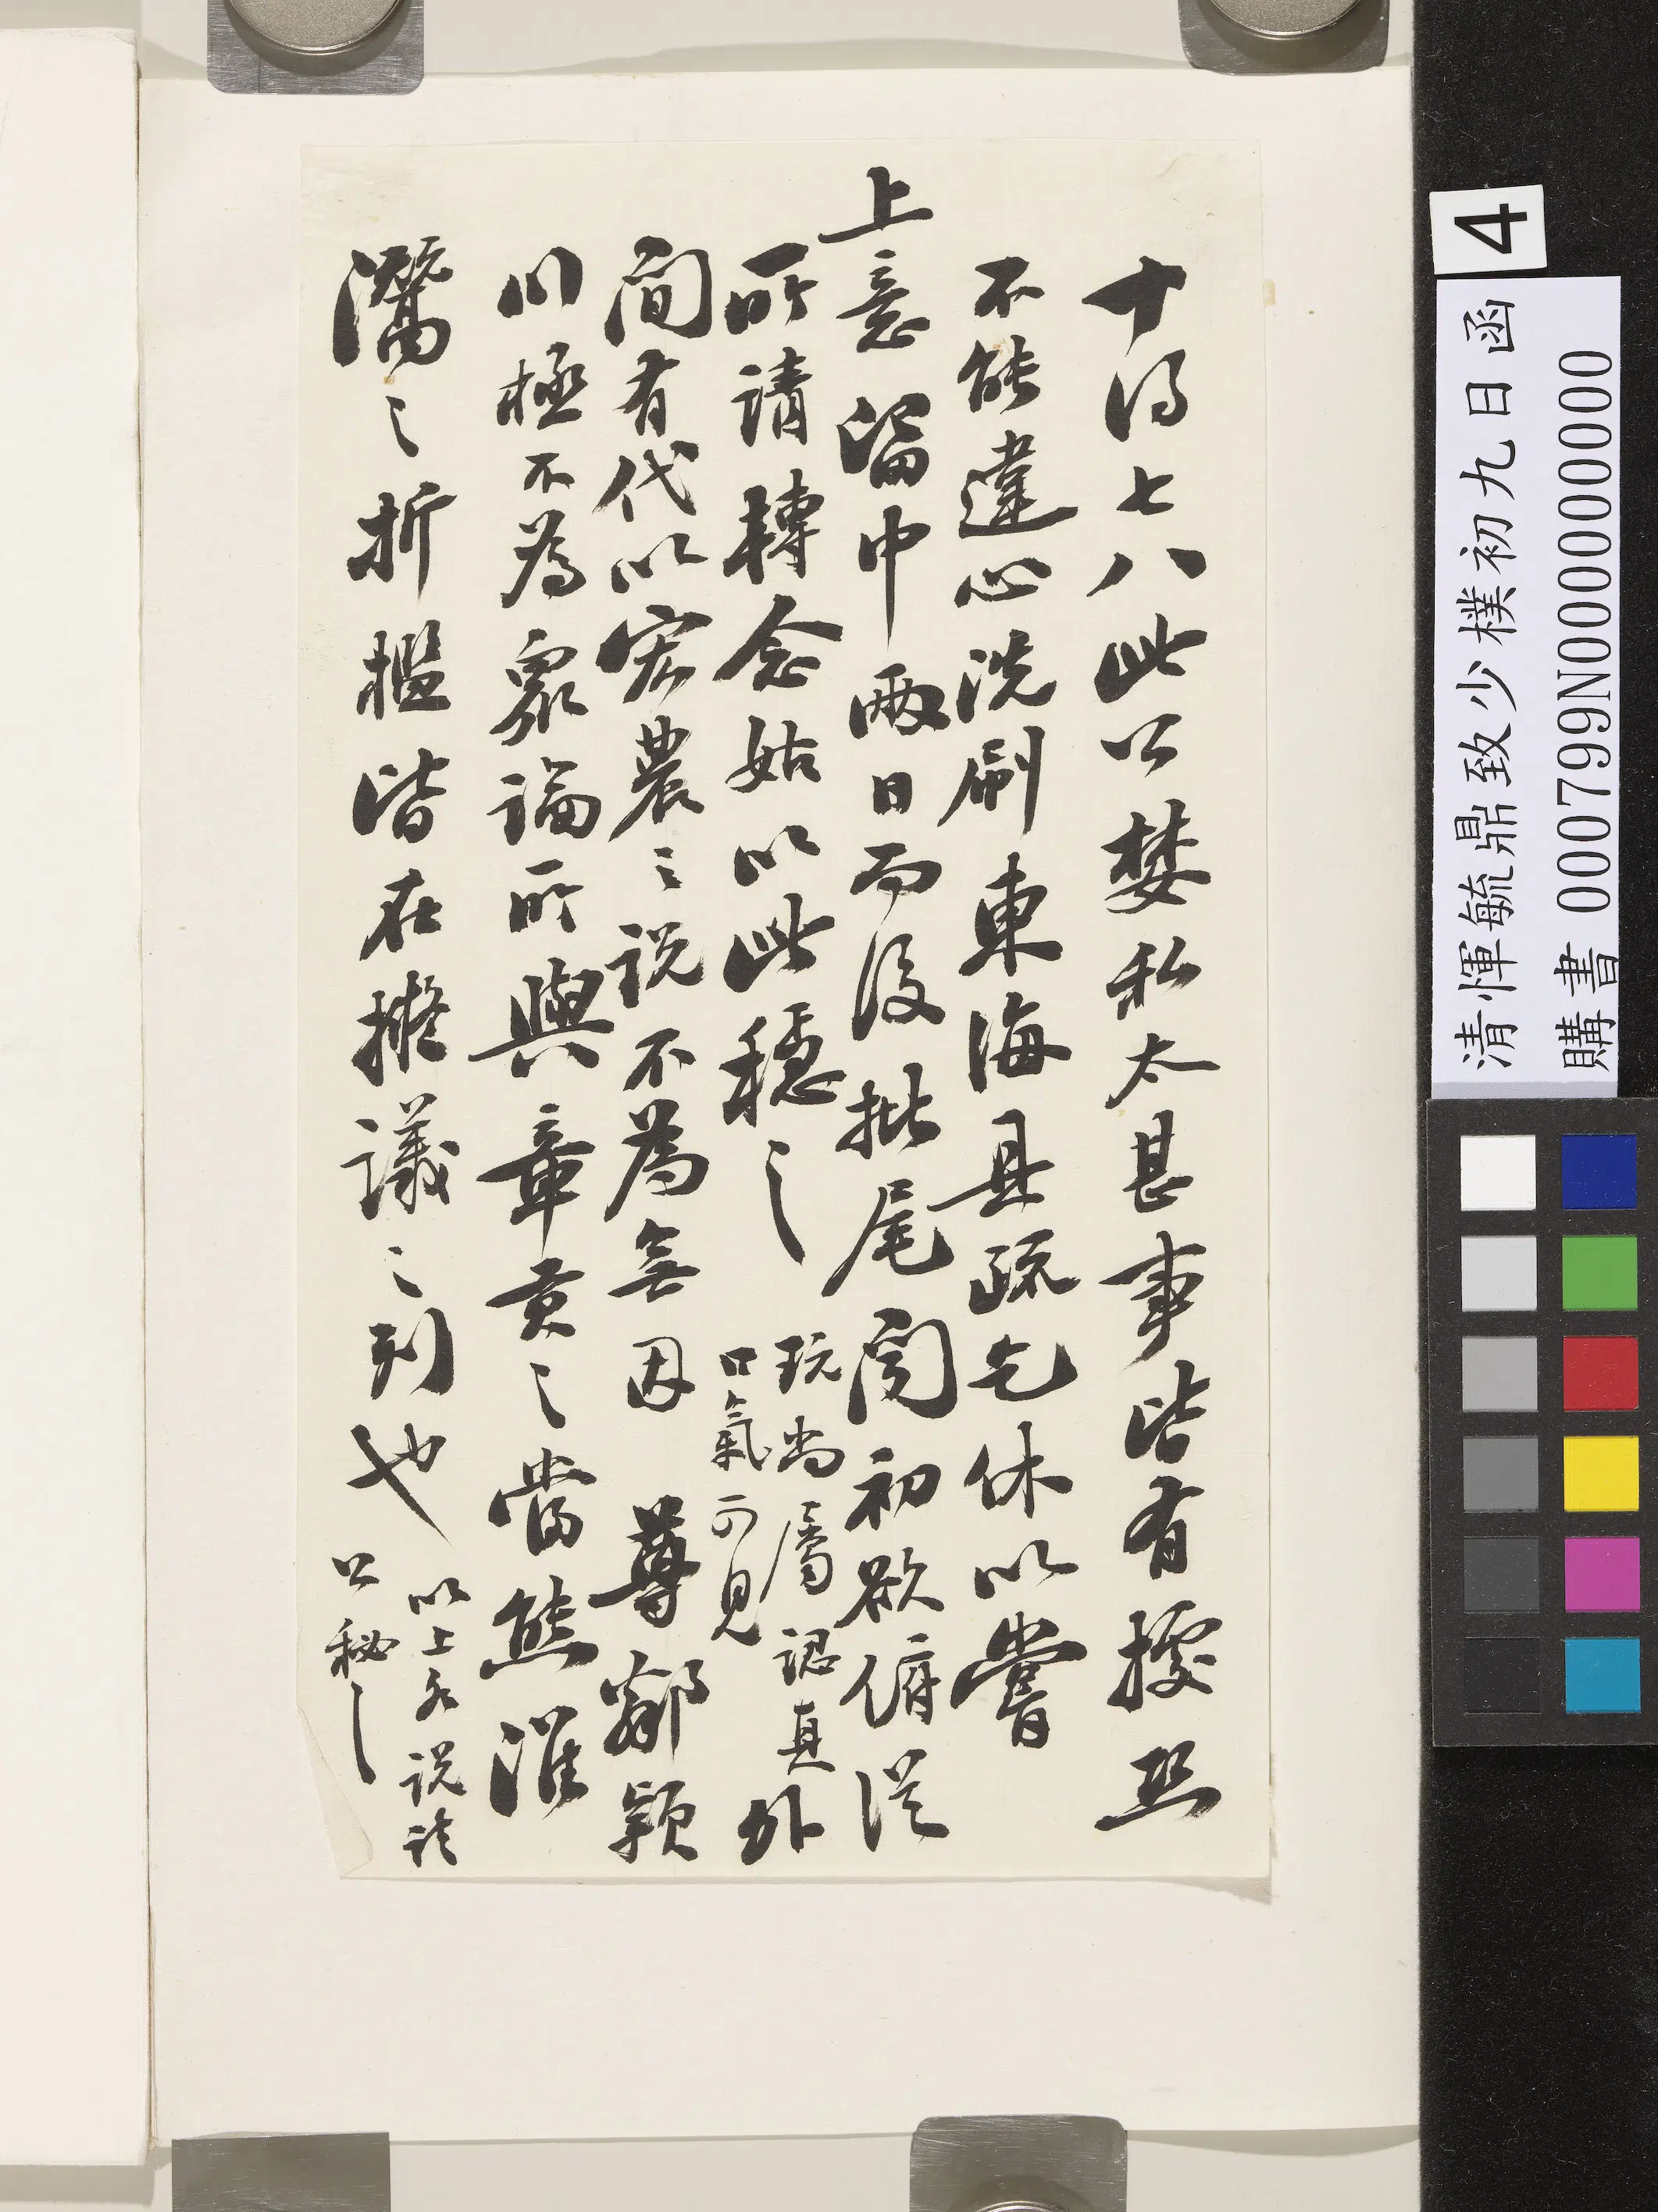 十得七八此公婪私太甚事皆有據恐
不能違心洗刷東海具疏乞休以嘗
上意留中兩日而後批尾聞初欲俯從
所請轉念姑以此穩之
玩尚屬認真
口氣可見
外
間有代以宏農之說不為無因 尊鄰潁
川極不為眾論所與章貢之當熊淮
灊之折檻皆在擬議之列也
以上各說請
公秘之
4
清惲毓鼎致少樸初九日函
購書 000799N000000000